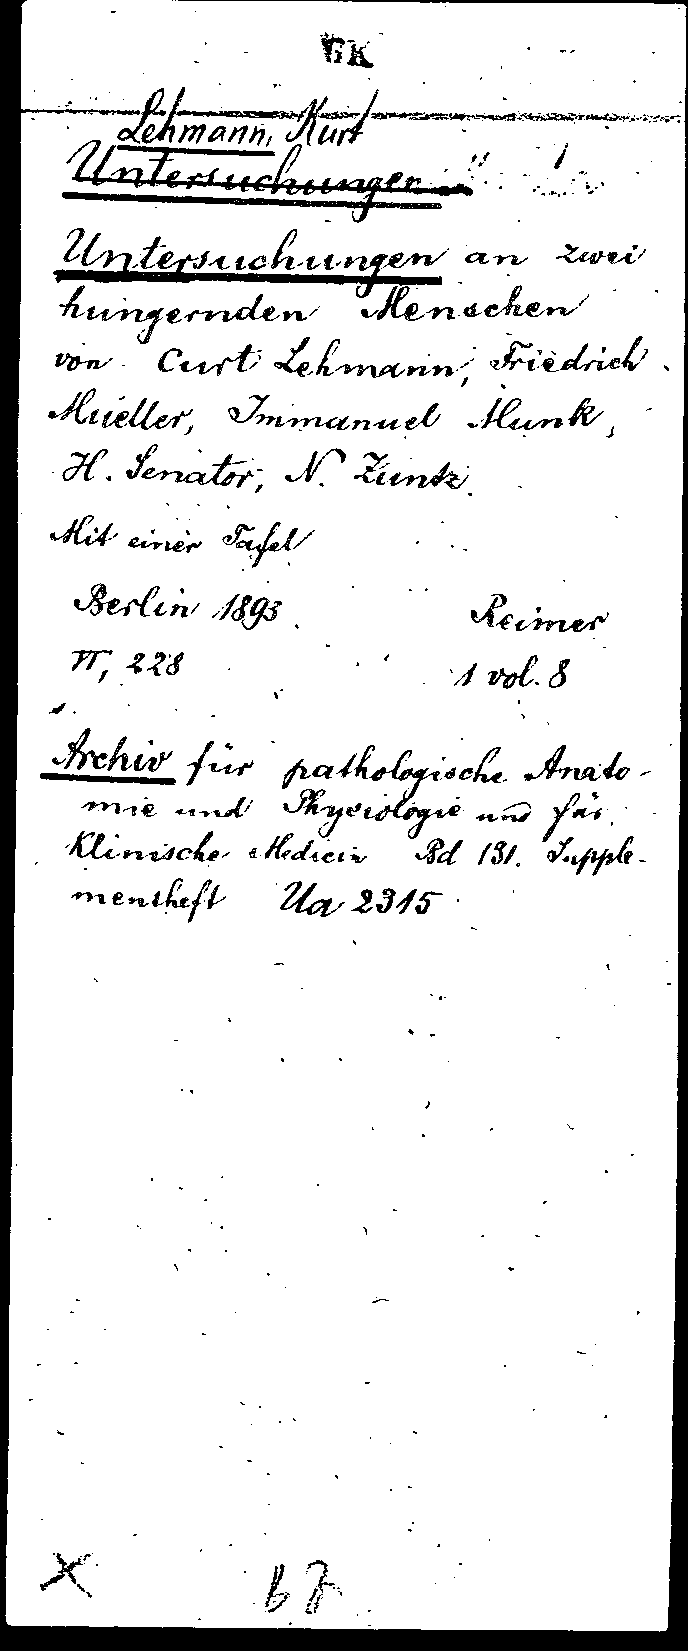 GK
Lehmann, Kurt
Untersuchungen
Untersuchungen an zwei
hungernden Menschen
von Curt Lehmann, Friedrich
Mueller, Immanuel Munk,
H. Senator, N. Zuntz.
Mit einer Tafel
Berlin 1893 Reimer
VI, 228 1 vol. 8
Archiv für pathologische Anato-
mie und Physiologie und für
Klinische Medicin Bd 131. Supple-
mentheft Ua 2315
X